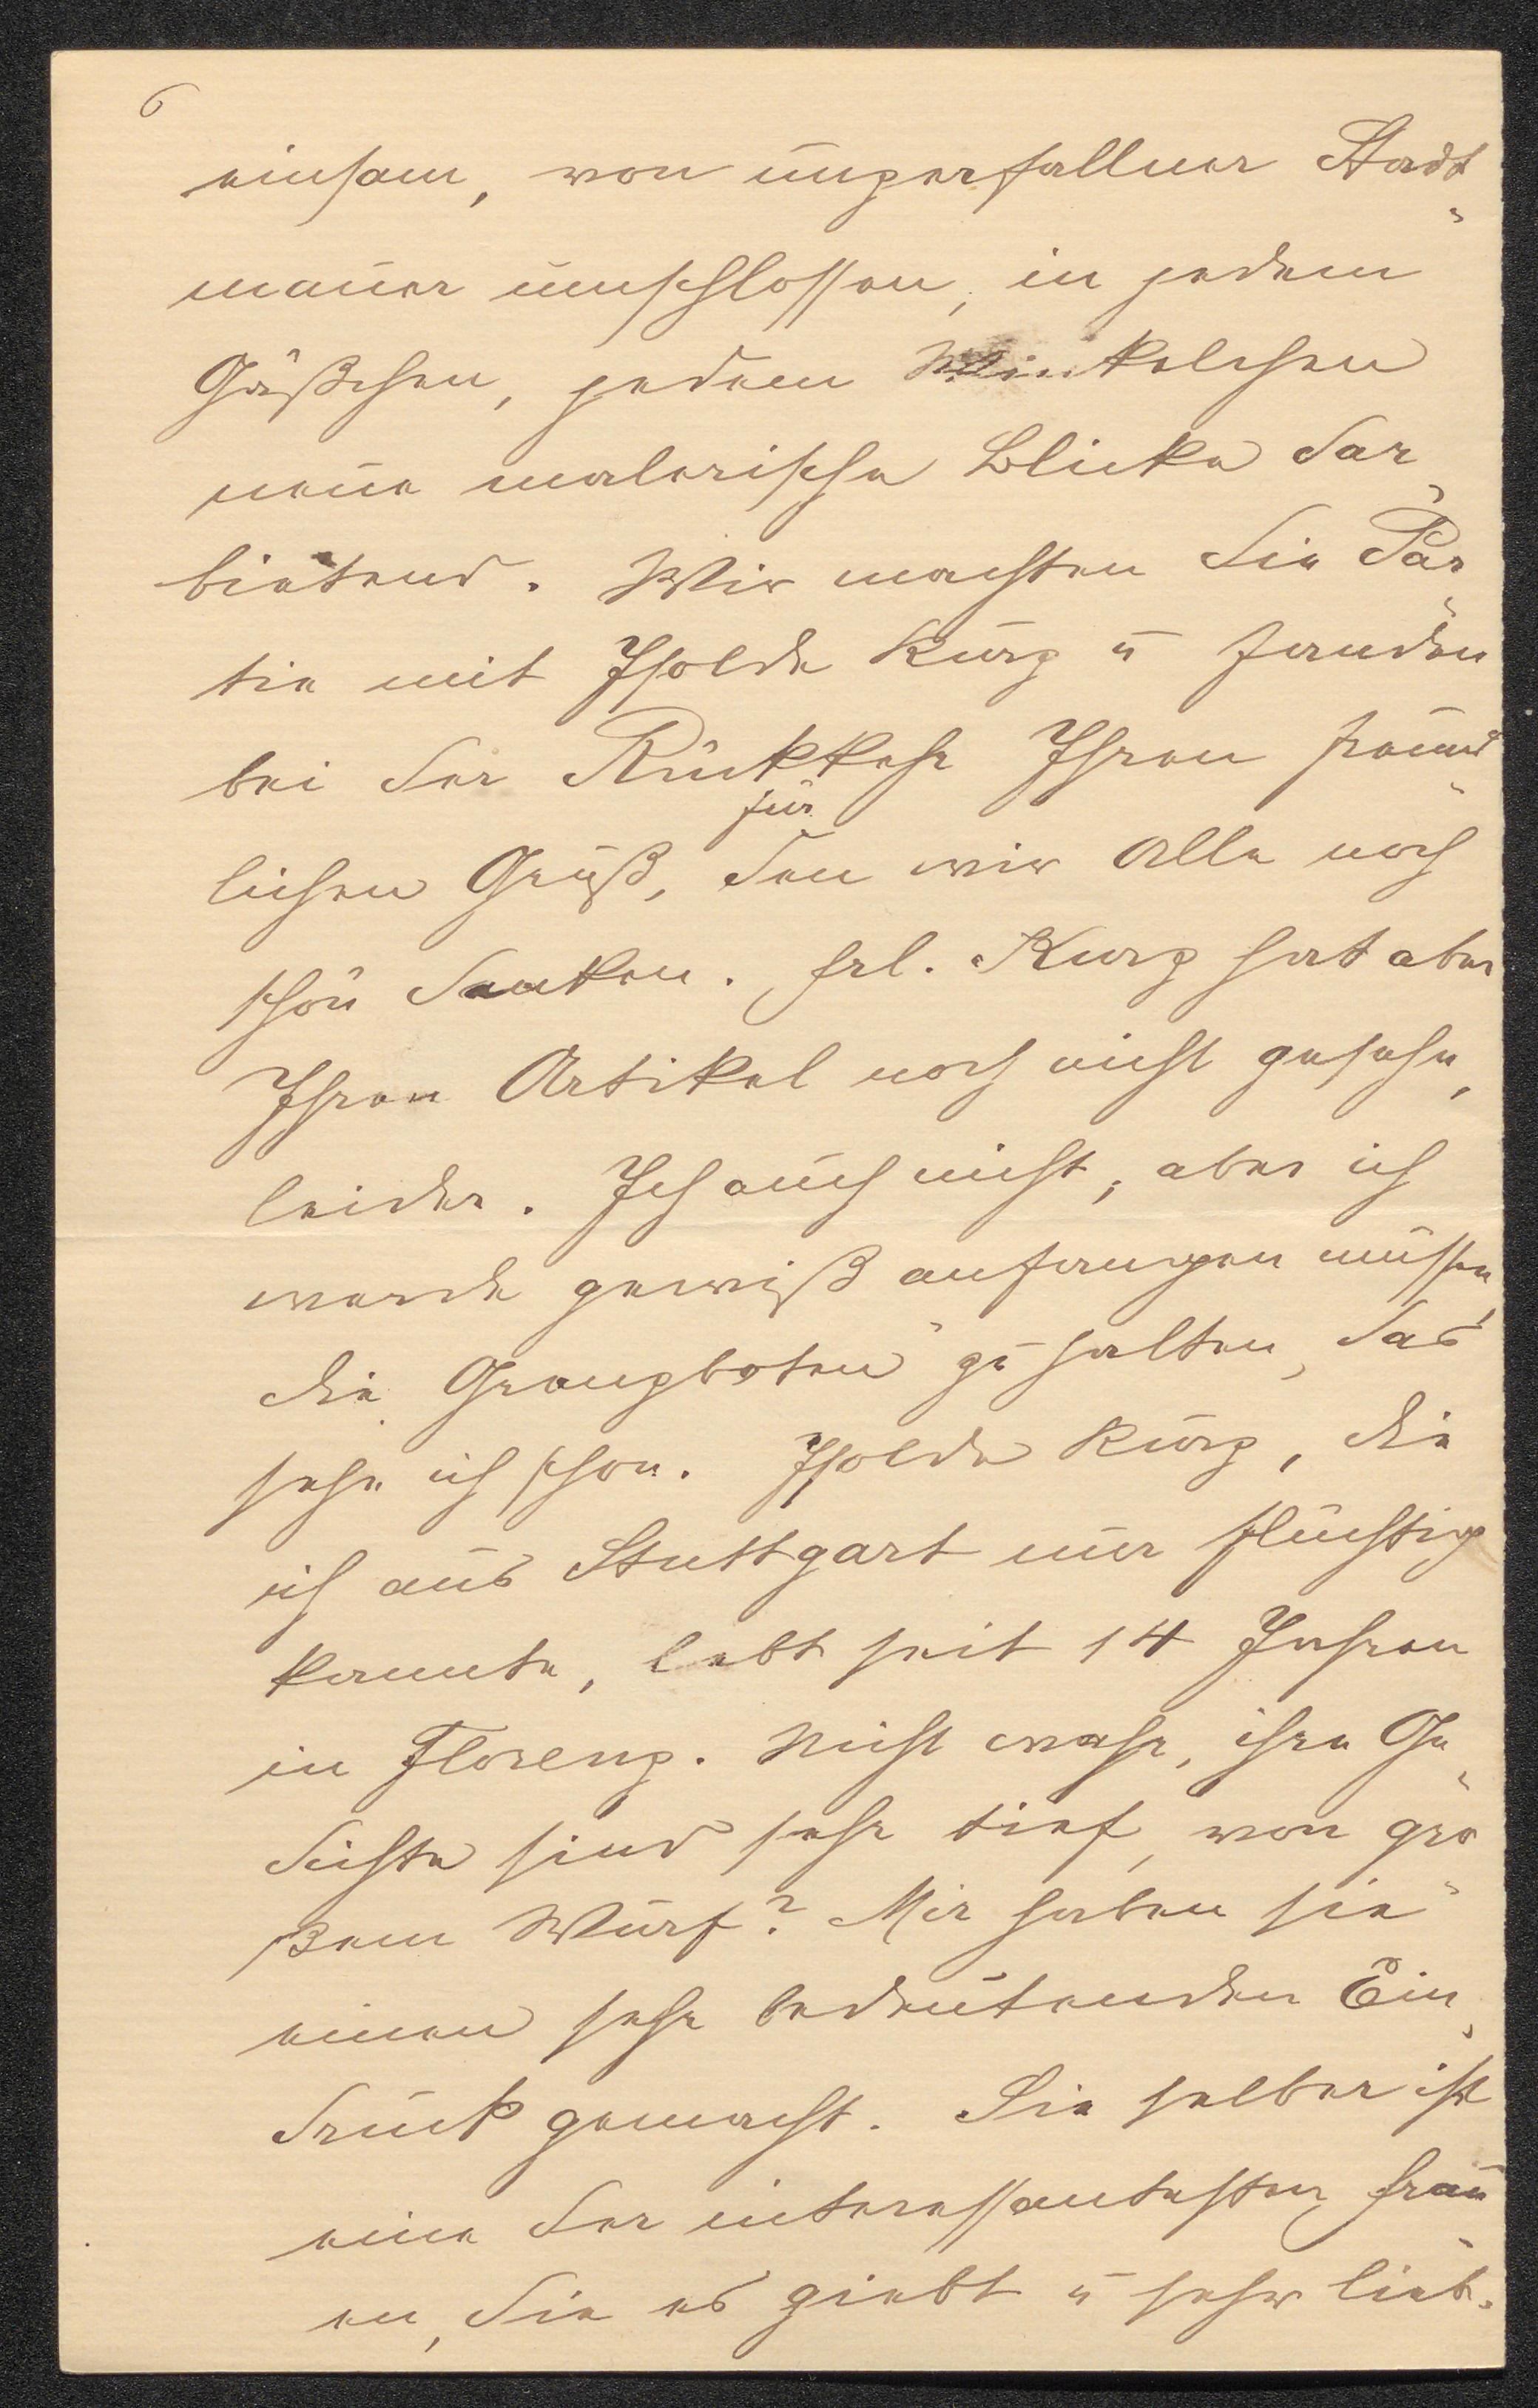 6
einsam, von unzerfallner Stadt-
mauer umschlossen, in jedem
Gäßchen, jedem Winkelchen
neue malerische Blicke dar-
bietend. Wir machten die Par-
tie mit Isolde Kurz u fanden
bei der Rückkehr Ihren freund-
für
lichen Gruß, den wir Alle noch
schön danken. Frl. Kurz hat aber
Ihren Artikel noch nicht gesehn,
leider. Ich auch nicht, aber ich
werde gewiß anfangen müssen,
die Grenzboten" zu halten, das
sehe ich schon. Isolde Kurz, die
ich aus Stuttgart nur flüchtig
kannte, lebt seit 14 Jahren
in Florenz. Nicht wahr, ihre Ge-
dichte sind sehr tief, von gro-
ßem Wurf? Mir haben sie
einen sehr bedeutenden Ein-
druck gemacht. Sie selber ist
eine der interessantesten Frau-
en, die es giebt u sehr lieb.